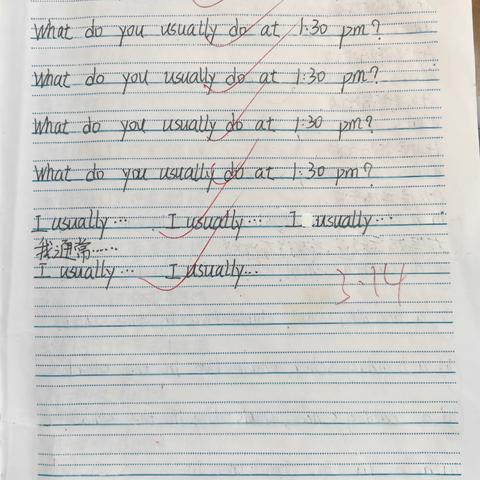 What do you usually do at 1:30 pm?
What do you usually do at 1:30 pm?
What do you usually do at 1:30 pm?
What do you usually do at 1:30 pm?
I usually... I usually... I usually...
我通常......
I usually... I usually...
3.14